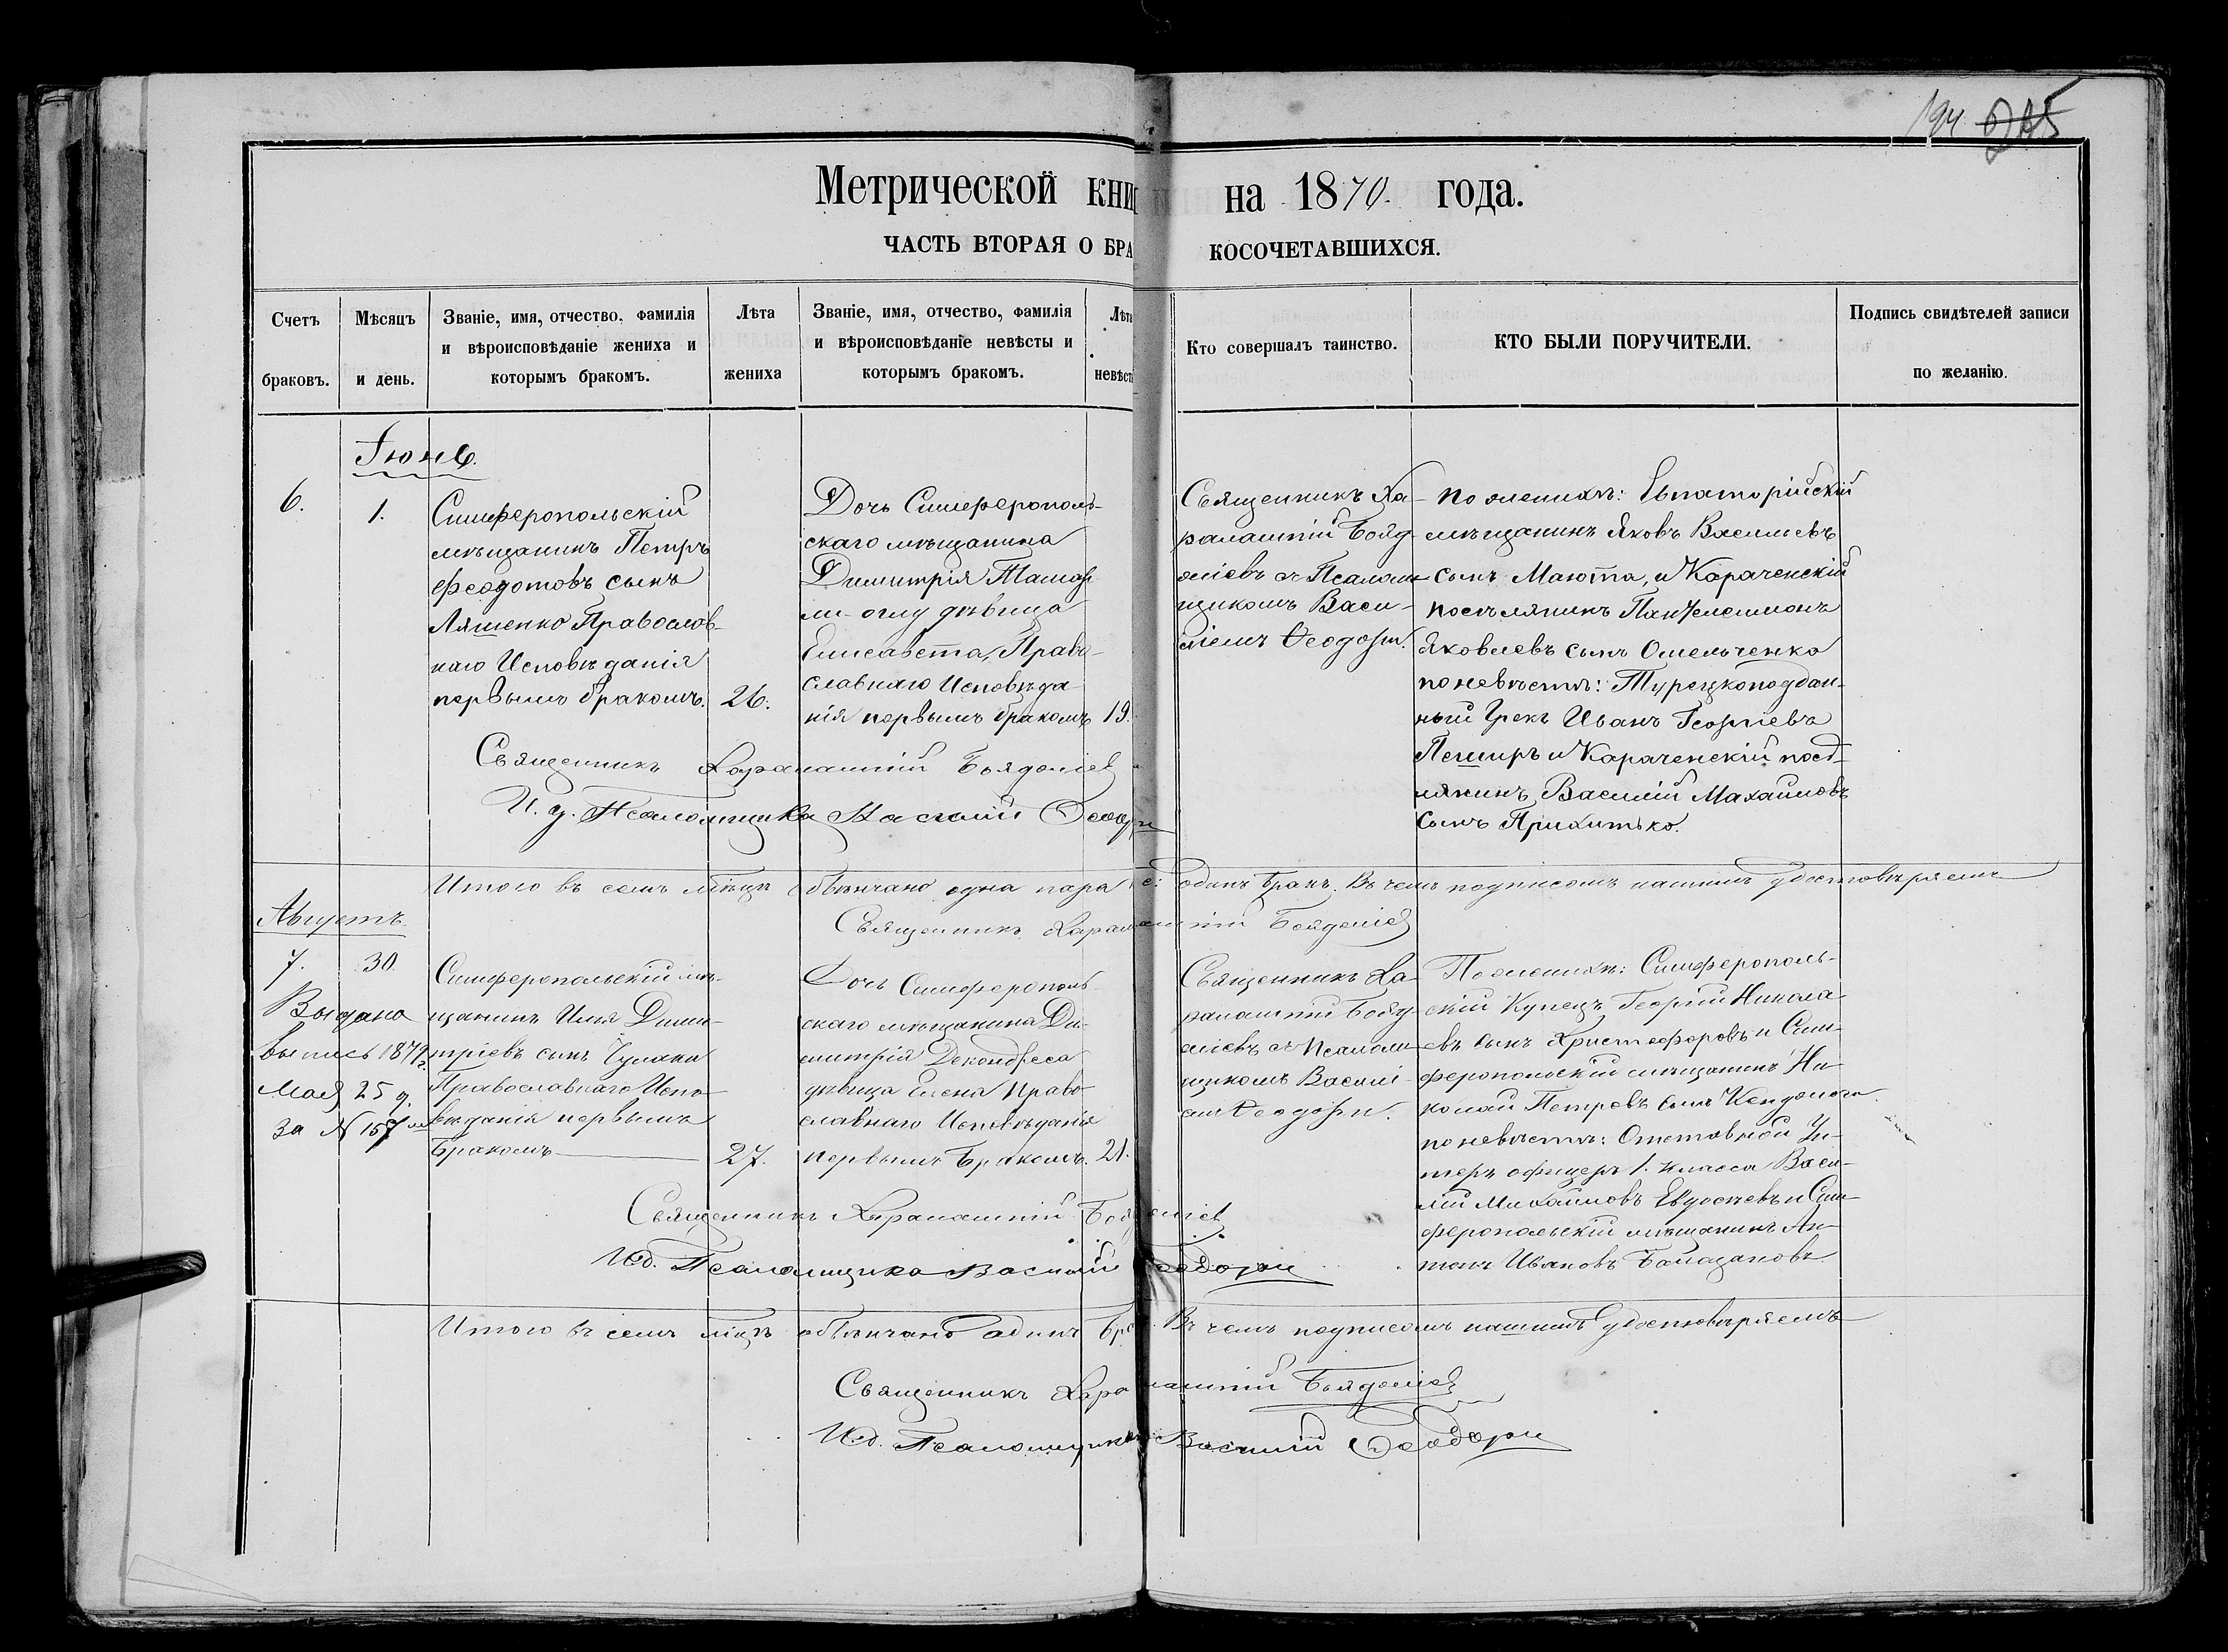 194 205
Метрической кни на 1870. года.
ЧАСТЬ ВТОРАЯ О БРА КОСОЧЕТАВШИХСЯ.
Счетъ браковъ.
Мѣсяцъ и день.
Званіе, имя, отчество, фамилія
и вѣроисповѣданіе жениха и
которымъ бракомъ.
Лѣта
жениха
Званіе, имя, отчество, фамилія
и вѣроисповѣданіе невѣсты и
которымъ бракомъ.
Лѣта
невѣст
Кто совершалъ таинство.
КТО БЫЛИ ПОРУЧИТЕЛИ.
Подпись свидѣтелей записи
по желанію.
Іюнь.
6.
1.
Симферопольскій
мѣщанинъ Петръ
Феодотовъ сынъ
Ляшенко Православ-
наго Исповѣданія
первымъ бракомъ.
26.
Дочь Симферополь-
скаго мѣщанина
Димитрія
ли-оглу дѣвица
Елисавета, Право-
славнаго Исповѣда
нія первымъ бракомъ
19.
Священникъ Ха-
ралампій Бояд-
жіевъ съ Псалом-
щикомъ Васи-
ліемъ Ѳеодори.
По женихѣ: Евпаторійскій
мѣщанинъ Яковъ Васильевъ
сынъ Маюта, и Караченскій
поселянинъ Пантелеимонъ
Яковлевъ сынъ Омельченко
по невѣстѣ: Турецкоподдан-
ный Грекъ Иванъ Георгіевъ
и Караченскій посе-
лянинъ Василій Махаиловъ
сынъ Прихитько.
Священникъ Харалампій Бояджіев
И. д. Псаломщика Василій Ѳеодори
Итого въ семъ мѣсцѣ обвѣнчано одна пара одинъ бракъ. Въ чемъ подписомъ нашимъ удостовѣряемъ
Священникъ Харалампій Бояджіев
Августъ
7.
30.
Выдана
выпись 1879 г.
Мая 25 д.
за N 157
Симферопольскій мѣ-
щанинъ Илія Дими-
тріевъ сынъ Чулаки
Православнаго Испо-
вѣданія первымъ
бракомъ
27.
Дочь Симферополь-
скаго мѣщанина Ди-
митрія
дѣвица Елена Право-
славнаго Исповѣданія
первымъ бракомъ.
21.
Священникъ Ха-
ралампій Бояд-
жіевъ съ Псалом-
щикомъ Василі-
емъ Ѳеодори.
По женихѣ: Симферополь-
скій Купецъ Георгій Никола-
евъ сынъ Христофоровъ и Сим-
феропольскій мѣщанинъ Ни-
колай Петровъ сынъ
по невѣстѣ: Отставной Ун-
теръ офицеръ 1. класса Васи-
лій Михаиловъ Евдосѣевъ и Сим-
феропольскій мѣщанинъ Ан-
тонъ Ивановъ
Священникъ Харалампій Бояджіев
И.д. Псаломщика Василій Ѳеодори
Итого въ семъ мѣцѣ обвѣнчано одинъ бра Въ чемъ подписомъ нашимъ удостовѣряемъ
Священникъ Харалампій Бояджіев
И.д. Псаломщика Василій Ѳеодори